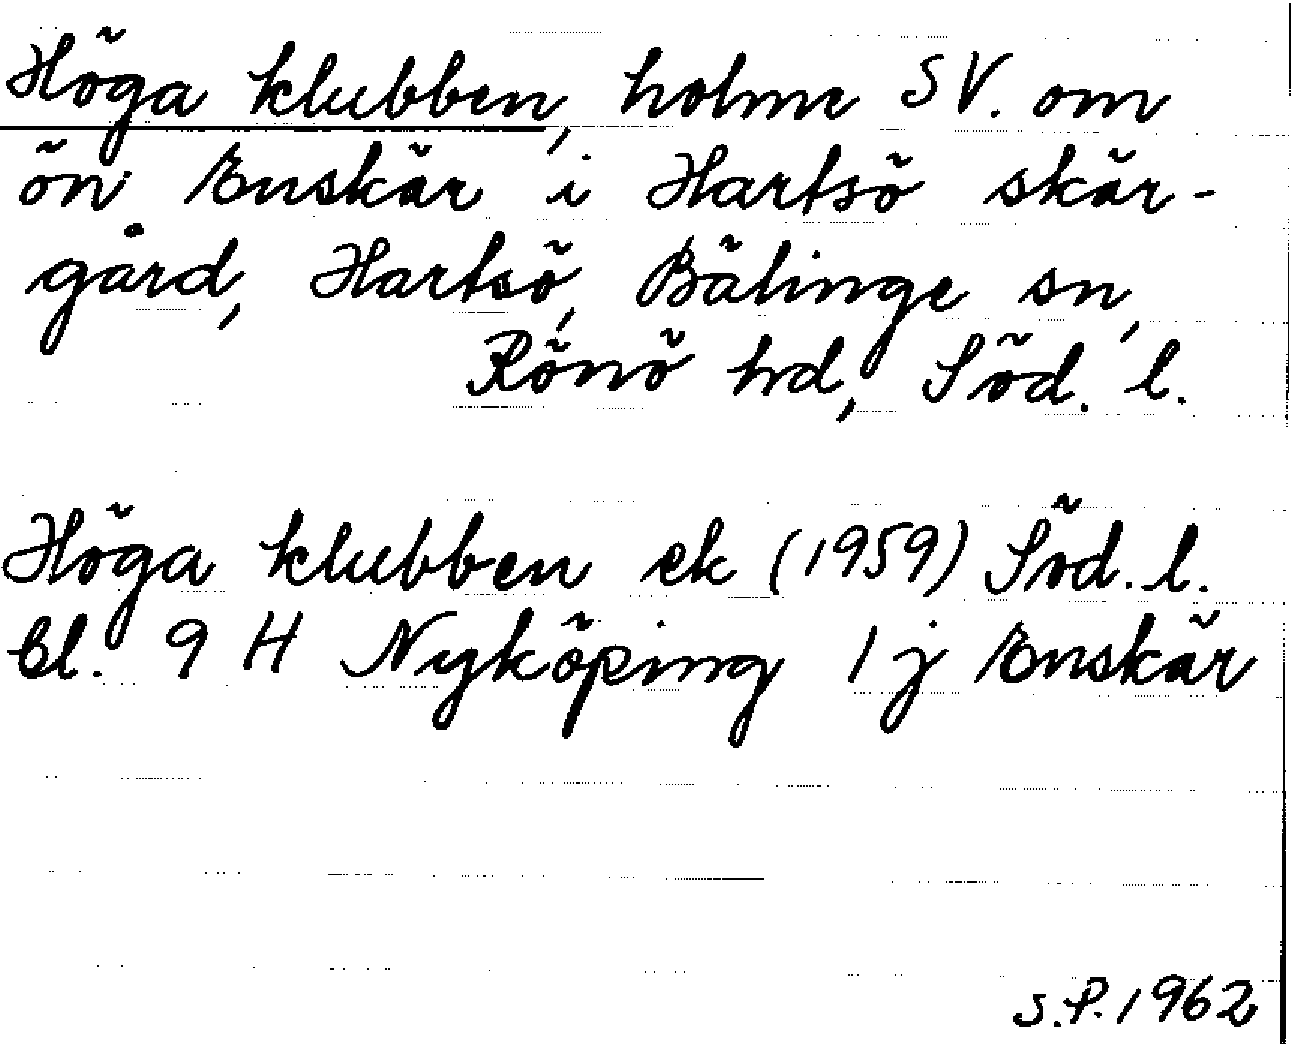 Höga klubben, holme SV. om
ön Enskär i Hartsö skär-
gård, Hartsö, Bälinge sn,
Rönö hd, Söd. l.
Höga klubben ek (1959) Söd. l.
bl. 9 H Nyköping 1 j Enskär
S.P. 1962